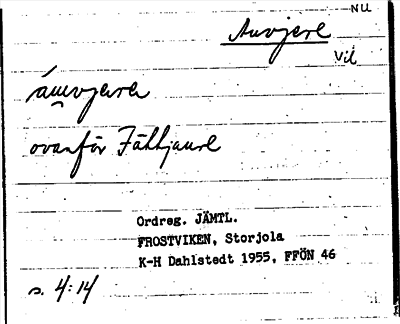 NU
Auvjere
Vil
áuvjere
ovanför Fältjaure
Ordreg. JÄMTL.
FROSTVIKEN, Storjola
K-H Dahlstedt 1955, FFÖN 46
s. 4:14